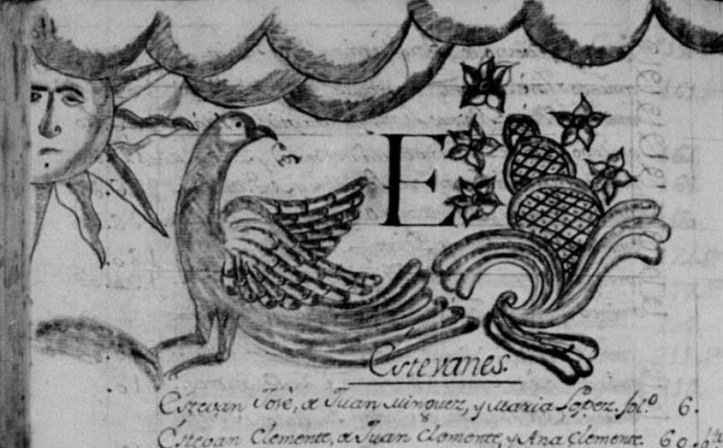 E
Estevanes.
Estevan José, de Juan Minguez, y Maria Lopez. fol.º 6.
Estevan Clemente, de Juan Clemente, y Ana Clemente. 60